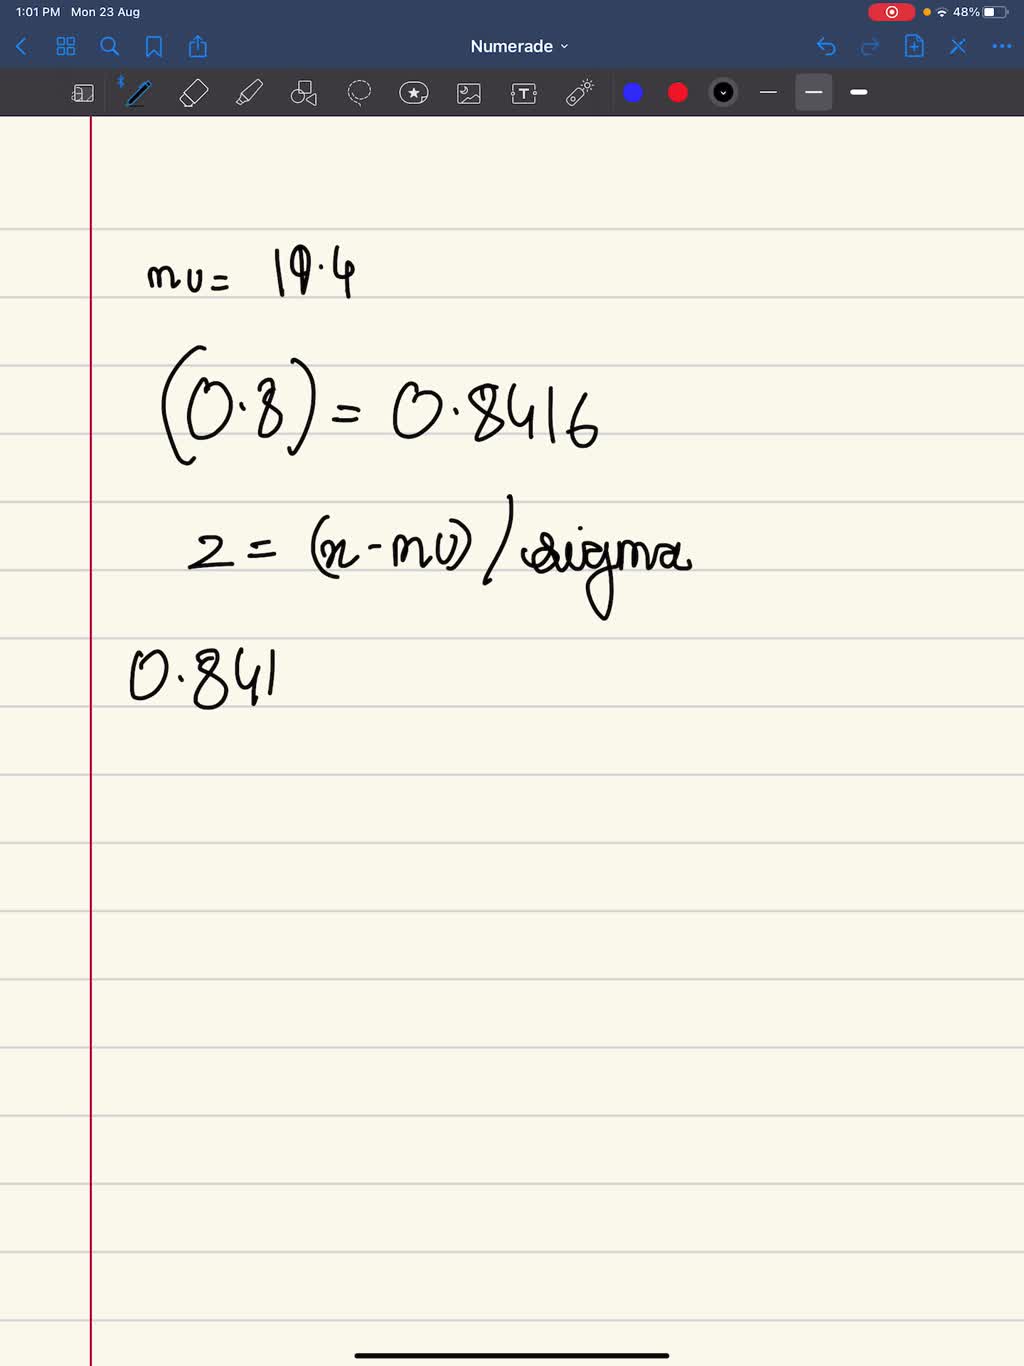 1:01 PM Mon 23 Aug 48%
Numerade
mu= 19.4
(0.8) = 0.8416
z = (x-mu)/sigma
0.841